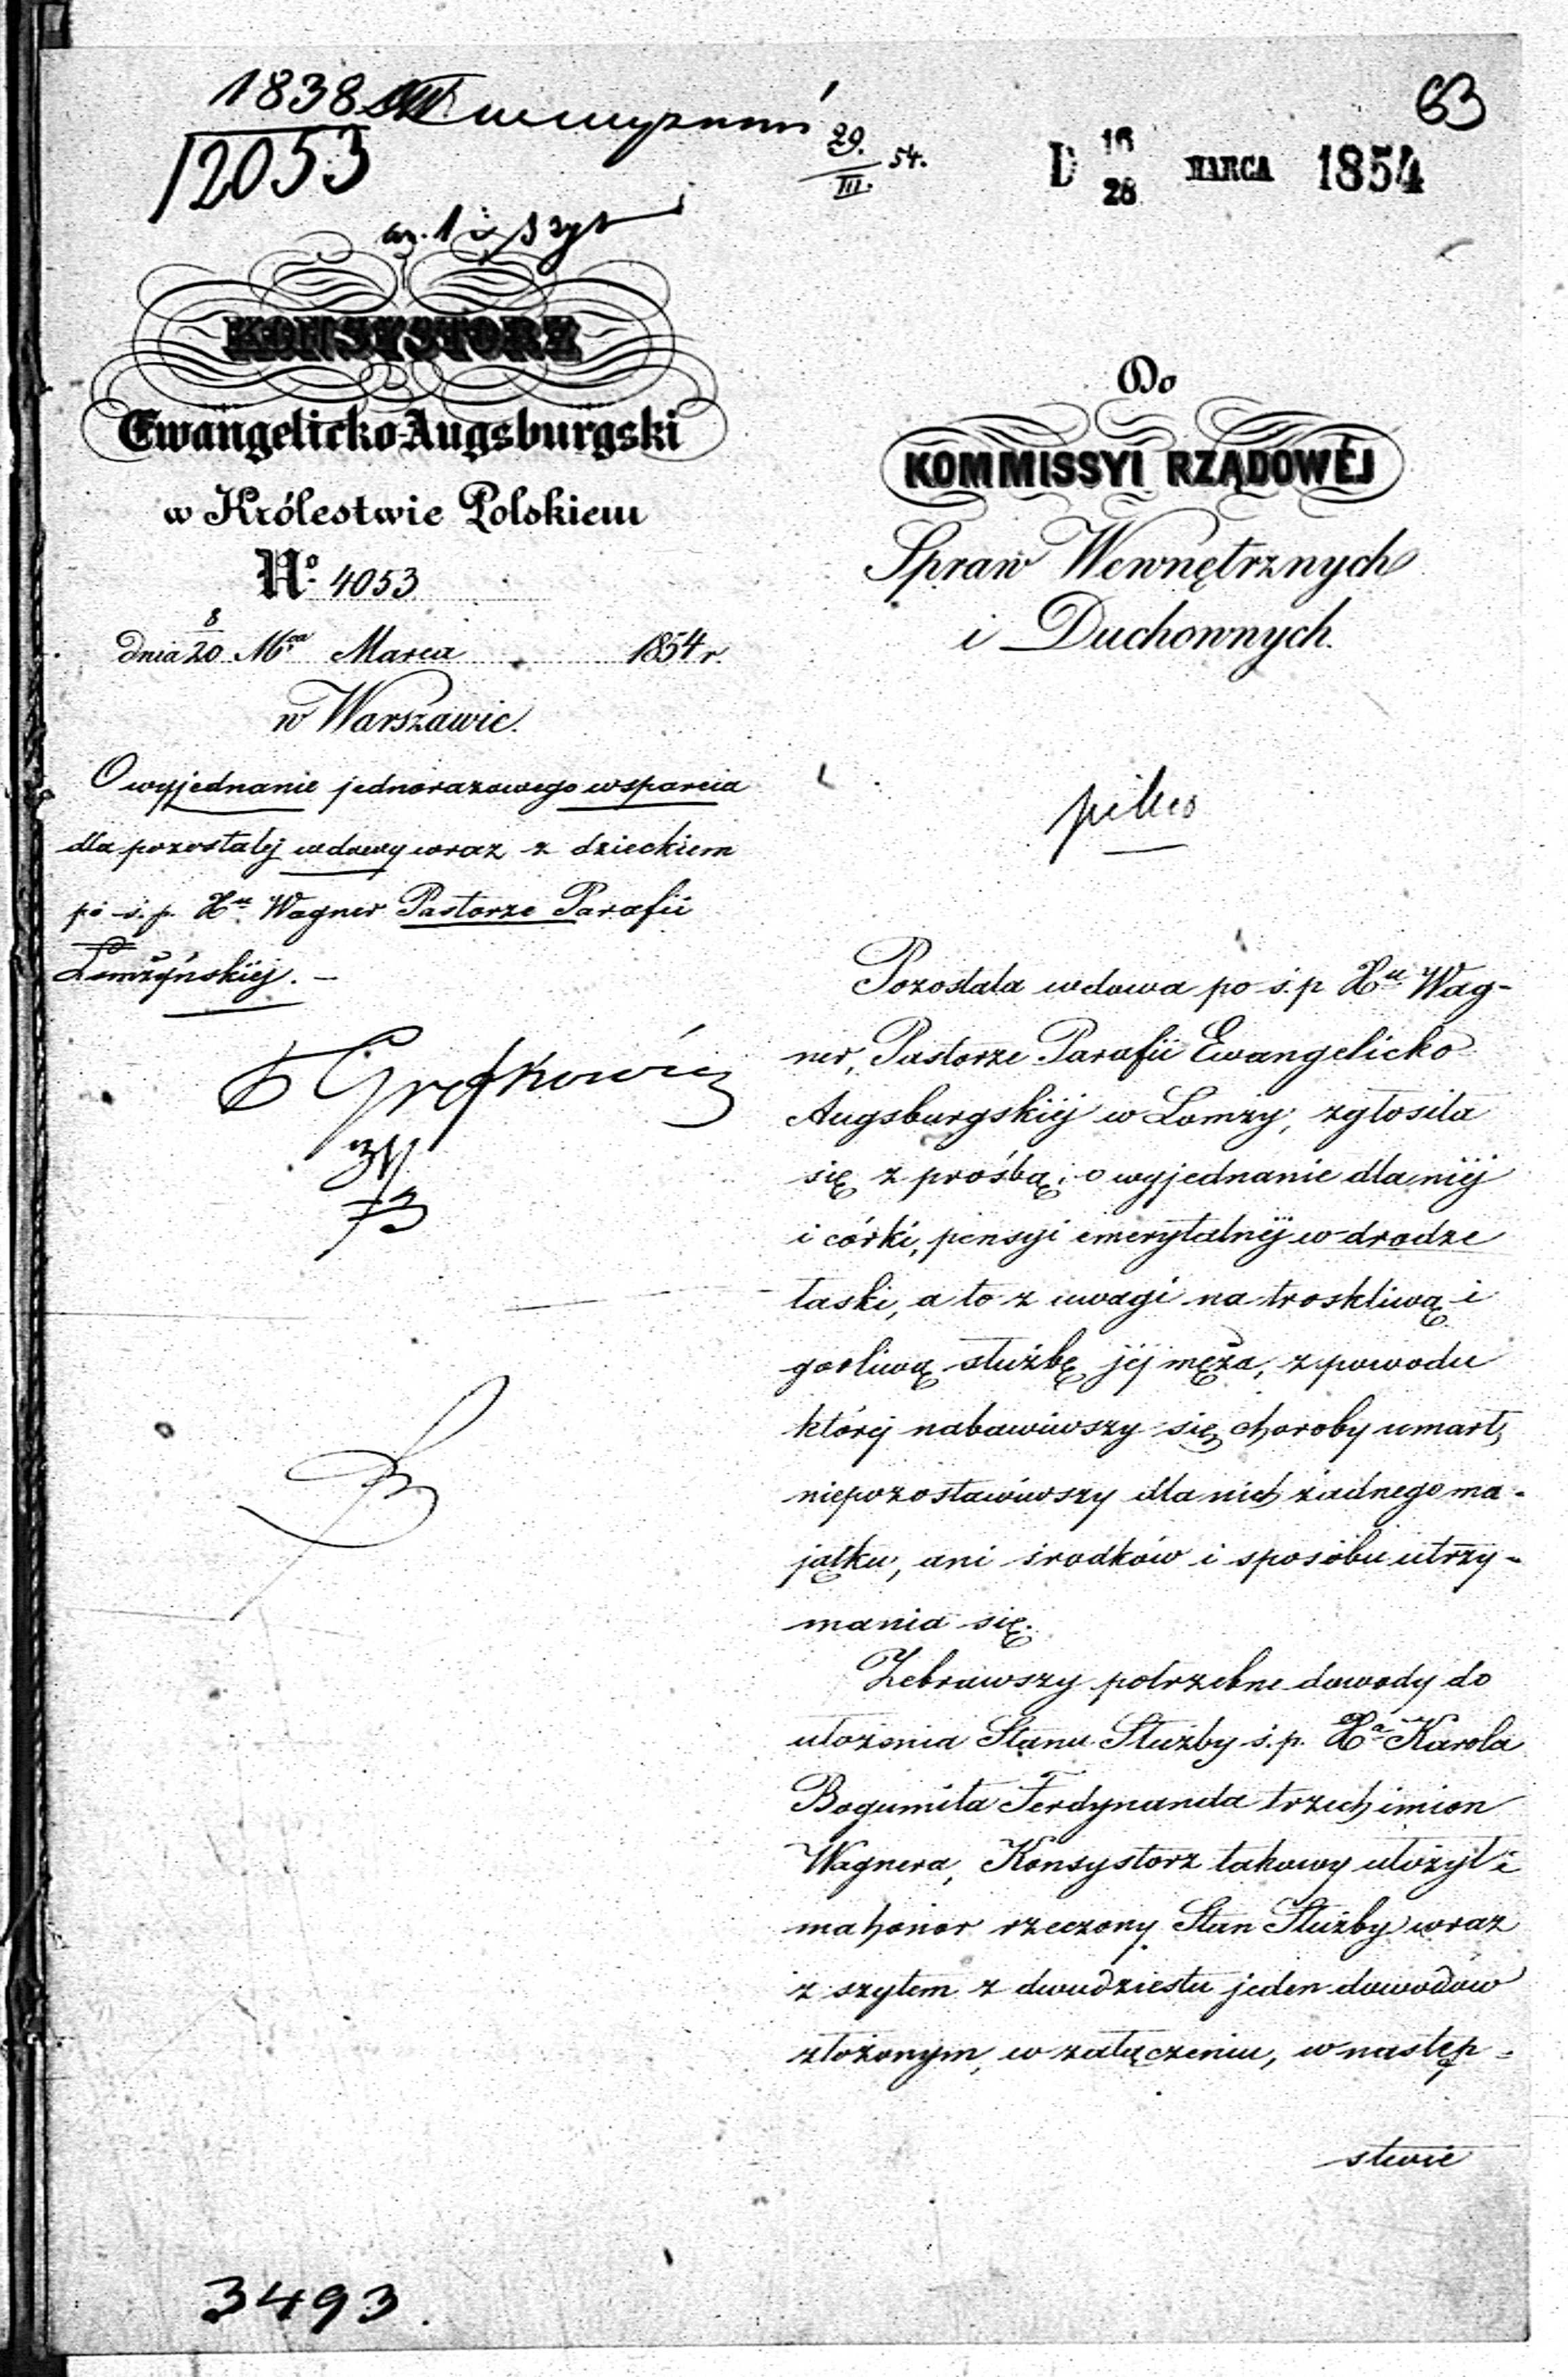 1838
12053
29./III. 54.
D 16/28 MARCA 1854
63
KONSYSTORZ
Ewangelicko-Augsburgski
w Królestwie Polskiem
No. 4053
dnia 8/20 Mca Marca 1854 r.
w Warszawie.
O wyjednanie jednorazowego wsparcia
dla pozostałej wdowy wraz z dzieckiem
po ś. p. Xu Wagner Pastorze Parafii
Łomżyńskiéj. –
Do
KOMMISSYI RZĄDOWÉJ
Spraw Wewnętrznych
i Duchownych.
pilno
Pozostała wdowa po ś. p Xu Wag-
ner, Pastorze Parafii Ewangelicko
Augsburgskiéj w Łomży, zgłosiła
się z prośbą, o wyjednanie dla niéj
i córki, pensyi emerytalnéj w drodze
łaski, a to z uwagi na troskliwą i
gorliwą służbę jéj męża, z powodu
któréj nabawiwszy się choroby umarł,
niepozostawiwszy dla nich żadnego ma-
jątku, ani środków i sposobu utrzy-
mania się.
Zebrawszy potrzebne dowody do
ułożenia Stanu Służby ś. p. Xa Karola
Bogumiła Ferdynanda trzech imion
Wagnera, Konsystorz takowy ułożył i
ma honor rzeczony Stan Służby wraz
z szytem z dwudziestu jeden dowodów
złożonym, w załączeniu, w następ-
stwie
3493.